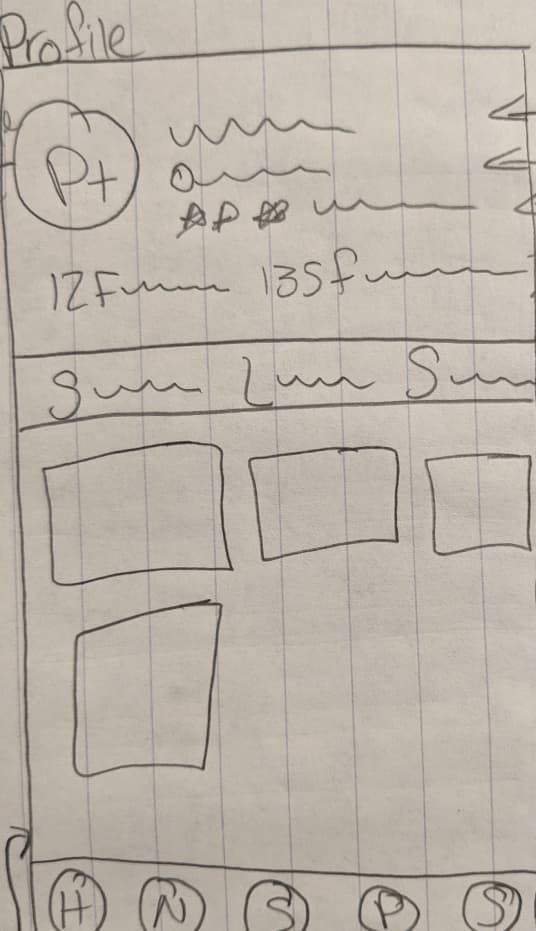 Profile
P+
12F 135f
S L S
H N S P S